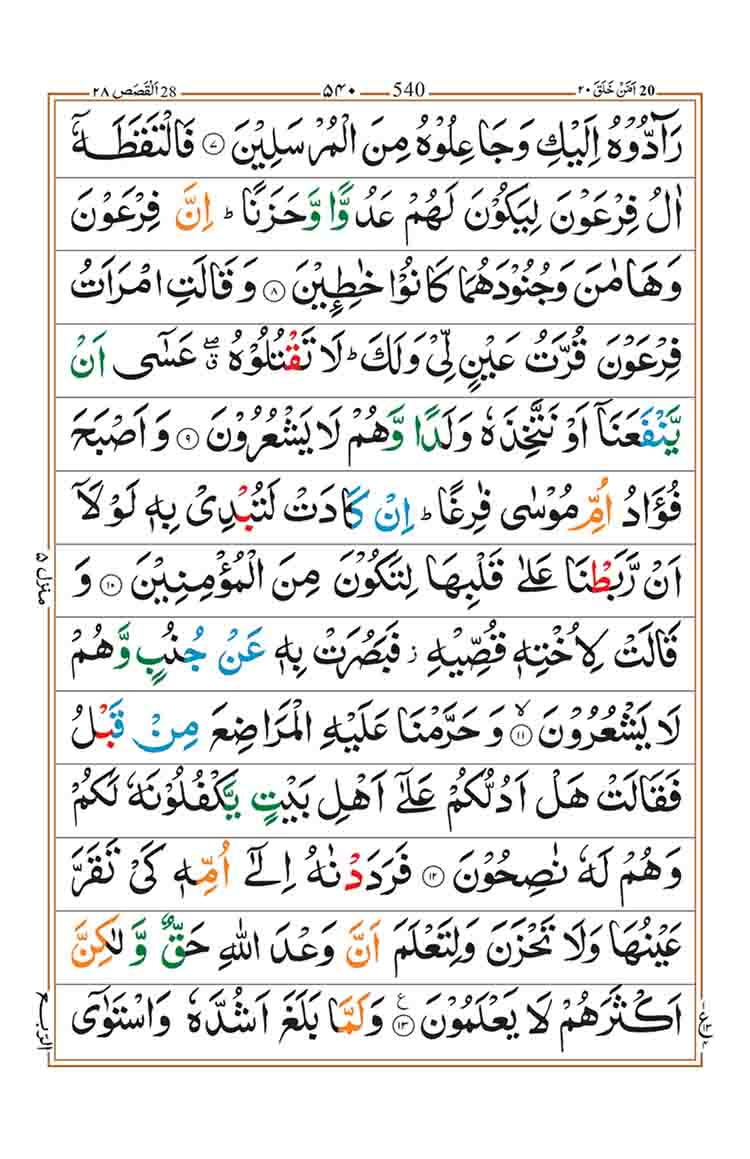 اَمَّنْ خَلَقَ ٢٠ 20 540 ۵۴۰ اَلْقَصَص ٢٨ 28
رَآدُّوْهُ اِلَيْكِ وَجَاعِلُوْهُ مِنَ الْمُرْسَلِيْنَ ۝۷ فَالْتَقَطَهٗۤ
اٰلُ فِرْعَوْنَ لِيَكُوْنَ لَهُمْ عَدُوًّا وَّحَزَنًا ؕ اِنَّ فِرْعَوْنَ
وَهَامٰنَ وَجُنُوْدَهُمَا كَانُوْا خٰطِـِٕيْنَ ۝۸ وَقَالَتِ امْرَاَتُ
فِرْعَوْنَ قُرَّتُ عَيْنٍ لِّيْ وَلَكَ ؕ لَا تَقْتُلُوْهُ ۖق عَسٰۤى اَنْ
يَّنْفَعَنَاۤ اَوْ نَتَّخِذَهٗ وَلَدًا وَّهُمْ لَا يَشْعُرُوْنَ ۝۹ وَاَصْبَحَ
فُؤَادُ اُمِّ مُوْسٰى فٰرِغًا ؕ اِنْ كَادَتْ لَتُبْدِيْ بِهٖ لَوْلَاۤ
اَنْ رَّبَطْنَا عَلٰى قَلْبِهَا لِتَكُوْنَ مِنَ الْمُؤْمِنِيْنَ ۝۱۰ وَ
قَالَتْ لِاُخْتِهٖ قُصِّيْهِ ز فَبَصُرَتْ بِهٖ عَنْ جُنُبٍ وَّهُمْ
لَا يَشْعُرُوْنَ ۝۱۱ۙ وَحَرَّمْنَا عَلَيْهِ الْمَرَاضِعَ مِنْ قَبْلُ
فَقَالَتْ هَلْ اَدُلُّكُمْ عَلٰۤى اَهْلِ بَيْتٍ يَّكْفُلُوْنَهٗ لَكُمْ
وَهُمْ لَهٗ نٰصِحُوْنَ ۝۱۲ فَرَدَدْنٰهُ اِلٰۤى اُمِّهٖ كَيْ تَقَرَّ
عَيْنُهَا وَلَا تَحْزَنَ وَلِتَعْلَمَ اَنَّ وَعْدَ اللّٰهِ حَقٌّ وَّلٰكِنَّ
اَكْثَرَهُمْ لَا يَعْلَمُوْنَ ۝۱۳ ع وَلَمَّا بَلَغَ اَشُدَّهٗ وَاسْتَوٰۤى
منزل ۵
الربع